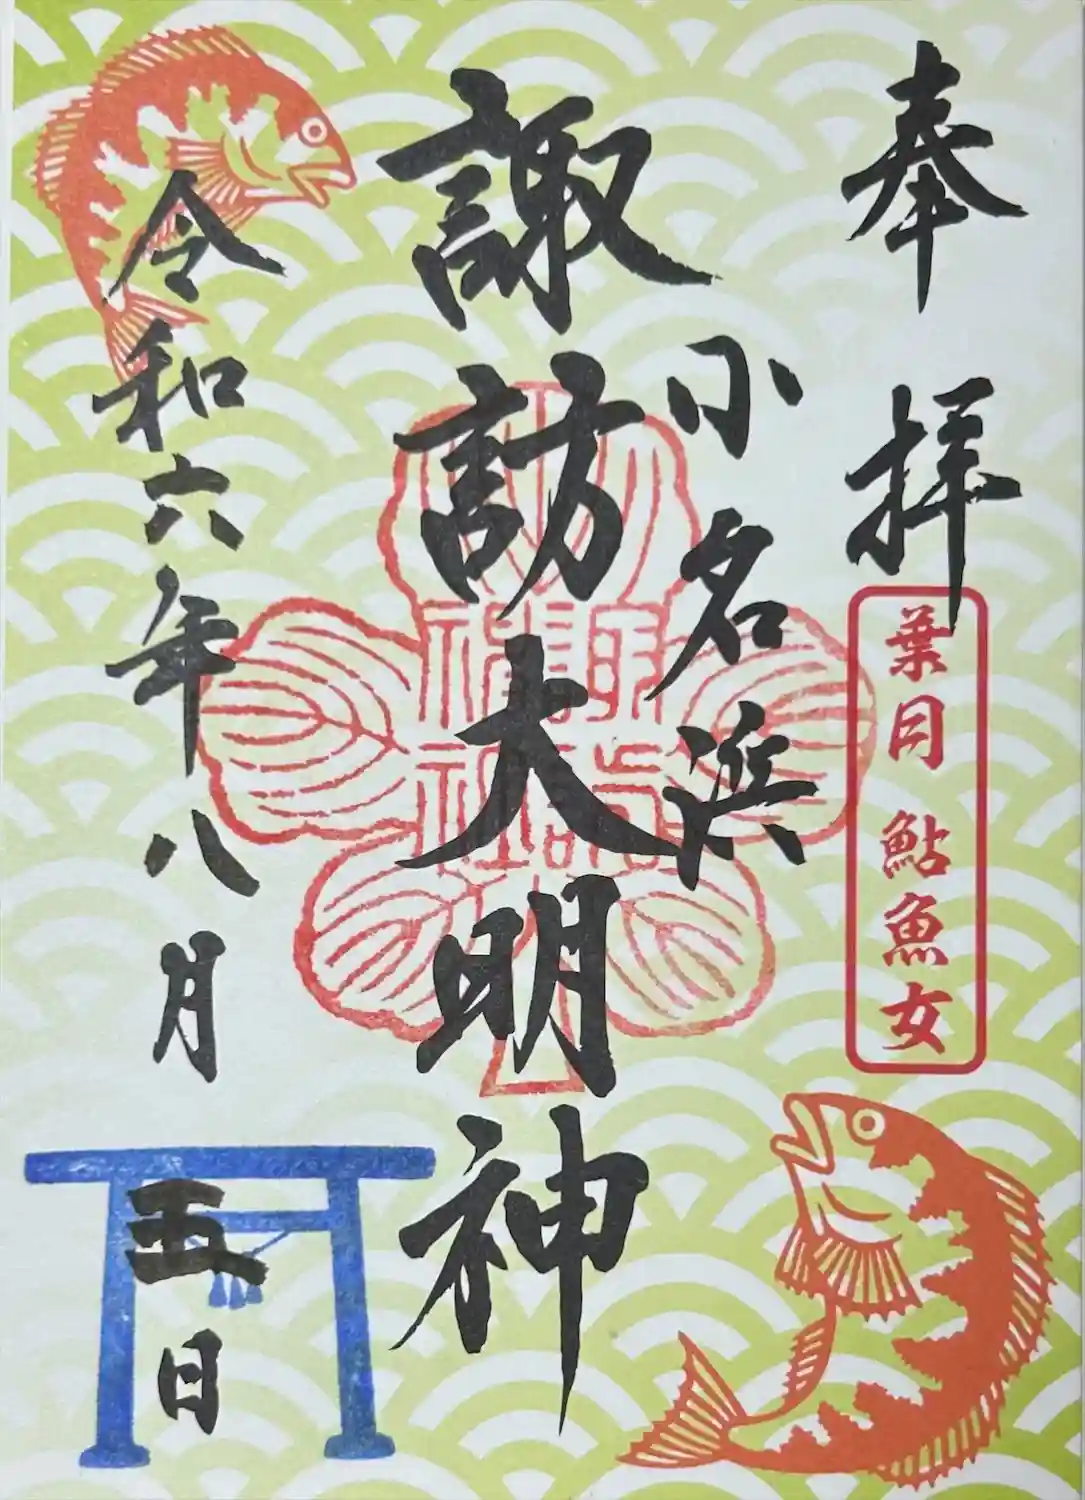 奉拝
葉月 鮎魚女
小名浜
諏訪大明神
令和六年八月五日